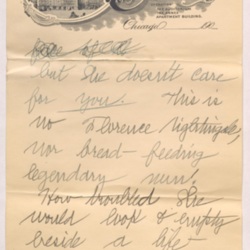 APARTMENT BUILDING.
Chicago 190
but she doesn't care
for you. This is
no Florence Nightingale,
nor bread-feeding
legendary nun!
How troubled she
would look & empty
beside a life-